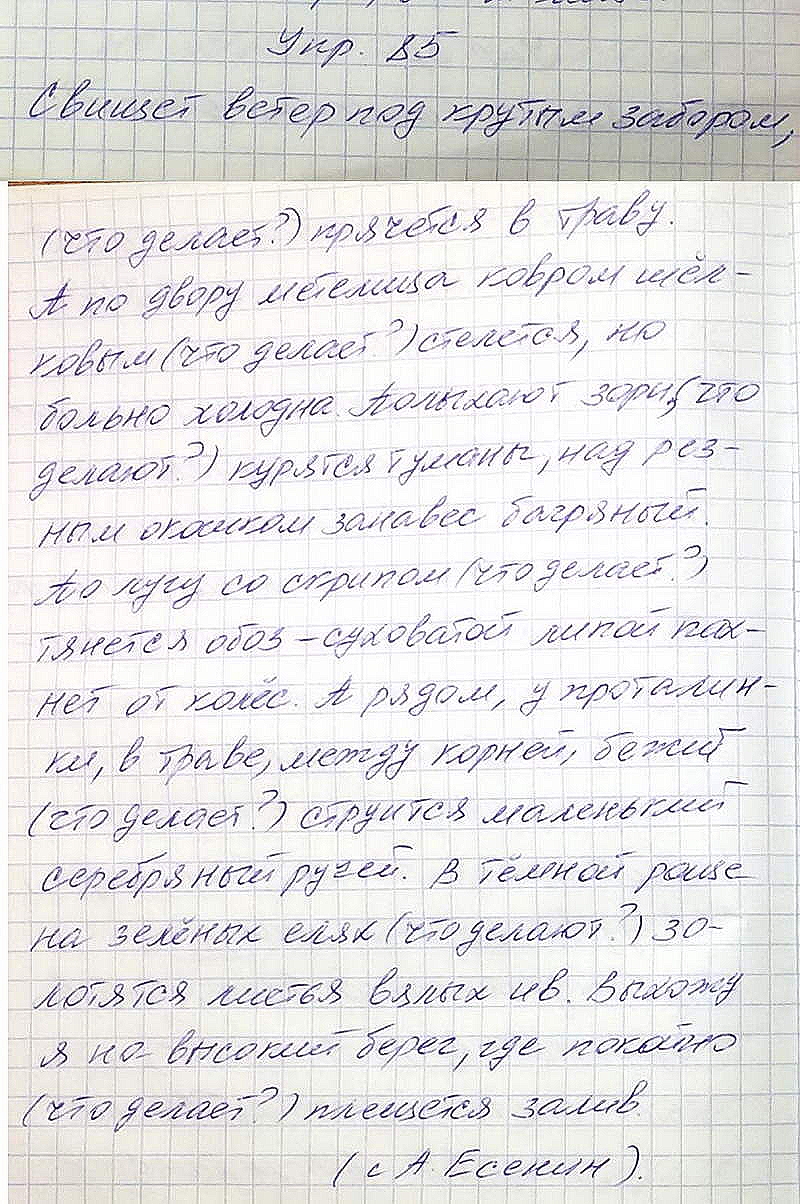 Укр. 85
Свищет ветер под крутым забором,
(что делает?) прячется в траву.
А по двору метелица ковром шёл-
ковым (что делает?) стелется, но
больно холодна. Полыхают зори, (что
делают?) курятся туманы, над рез-
ным окошком занавес багряный.
По лугу со скрипом (что делает?)
тянется обоз – суховатой липой пах-
нет от колёс. А рядом, у проталин-
ки, в траве, между корней, бежит
(что делает?) струится маленький
серебряный ручей. В тёмной роще
на зелёных елях (что делают?) зо-
лотятся листья вялых ив. Выхожу
я на высокий берег, где покойно
(что делает?) плещется залив.
(с А. Есенин).